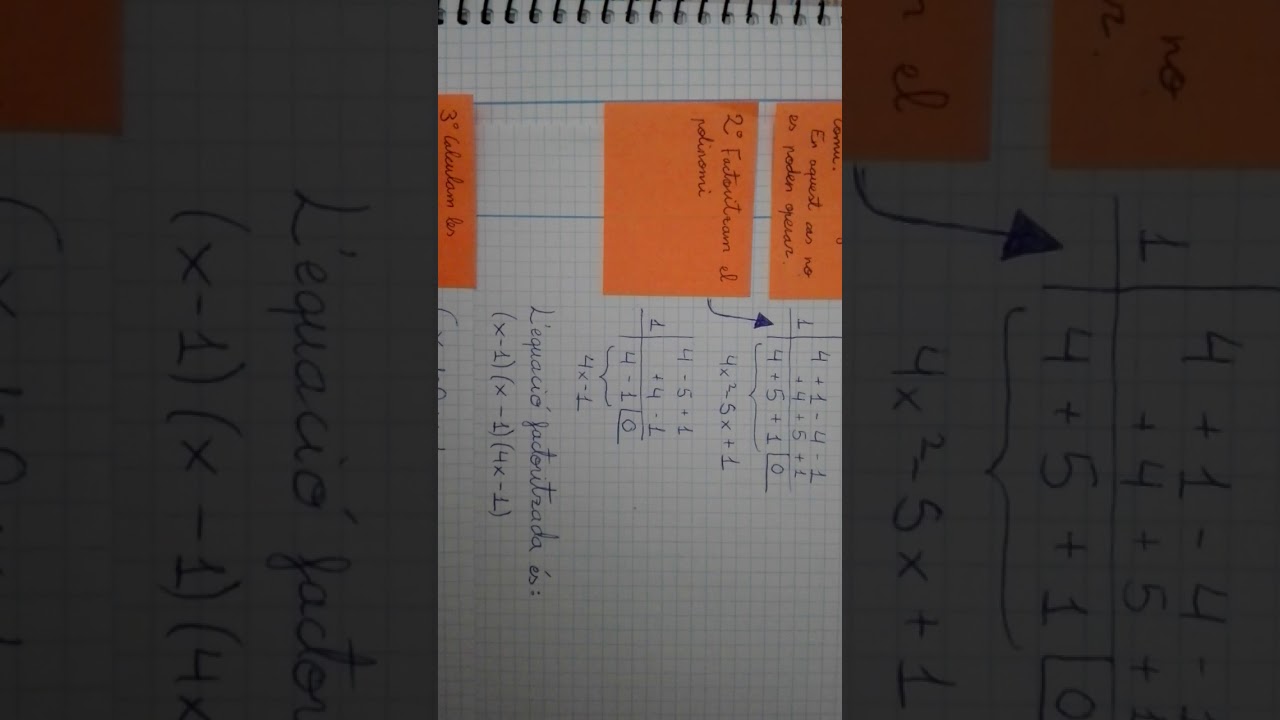 comú.
En aquest cas no
es poden operar.
4 + 1 - 4 - 1
1
+ 4 + 5 + 1
4 + 5 + 1 0
2º Factoritzam el
polinomi
4x²-5x+1
4 - 5 + 1
1
+4 - 1
4 - 1 0
4x-1
L'equació factoritzada és:
(x-1)(x-1)(4x-1)
3º Calculam les